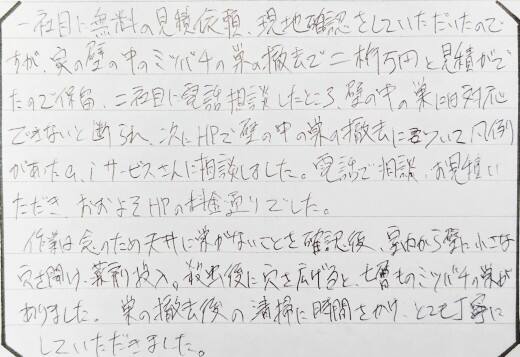 一社目に無料の見積依頼、現地確認をしていただいたので
すが、家の壁の中のミツバチの巣の撤去で二桁万円と見積がで
たので保留、二社目に電話相談したところ、壁の中の巣には対応
できないと断られ、次にHPで壁の中の巣の撤去について凡例
があたa.iサービスさんに相談しました。電話で相談、お見積い
ただき、おおよそHPの料金通りでした。
作業は念のため天井に巣がないことを確認後、室内から壁に小さな
穴を開け、薬剤投入。殺虫後に穴を広げると、七層ものミツバチの巣が
ありました。巣の撤去後の清掃に時間をかけ、とても丁寧に
していただきました。